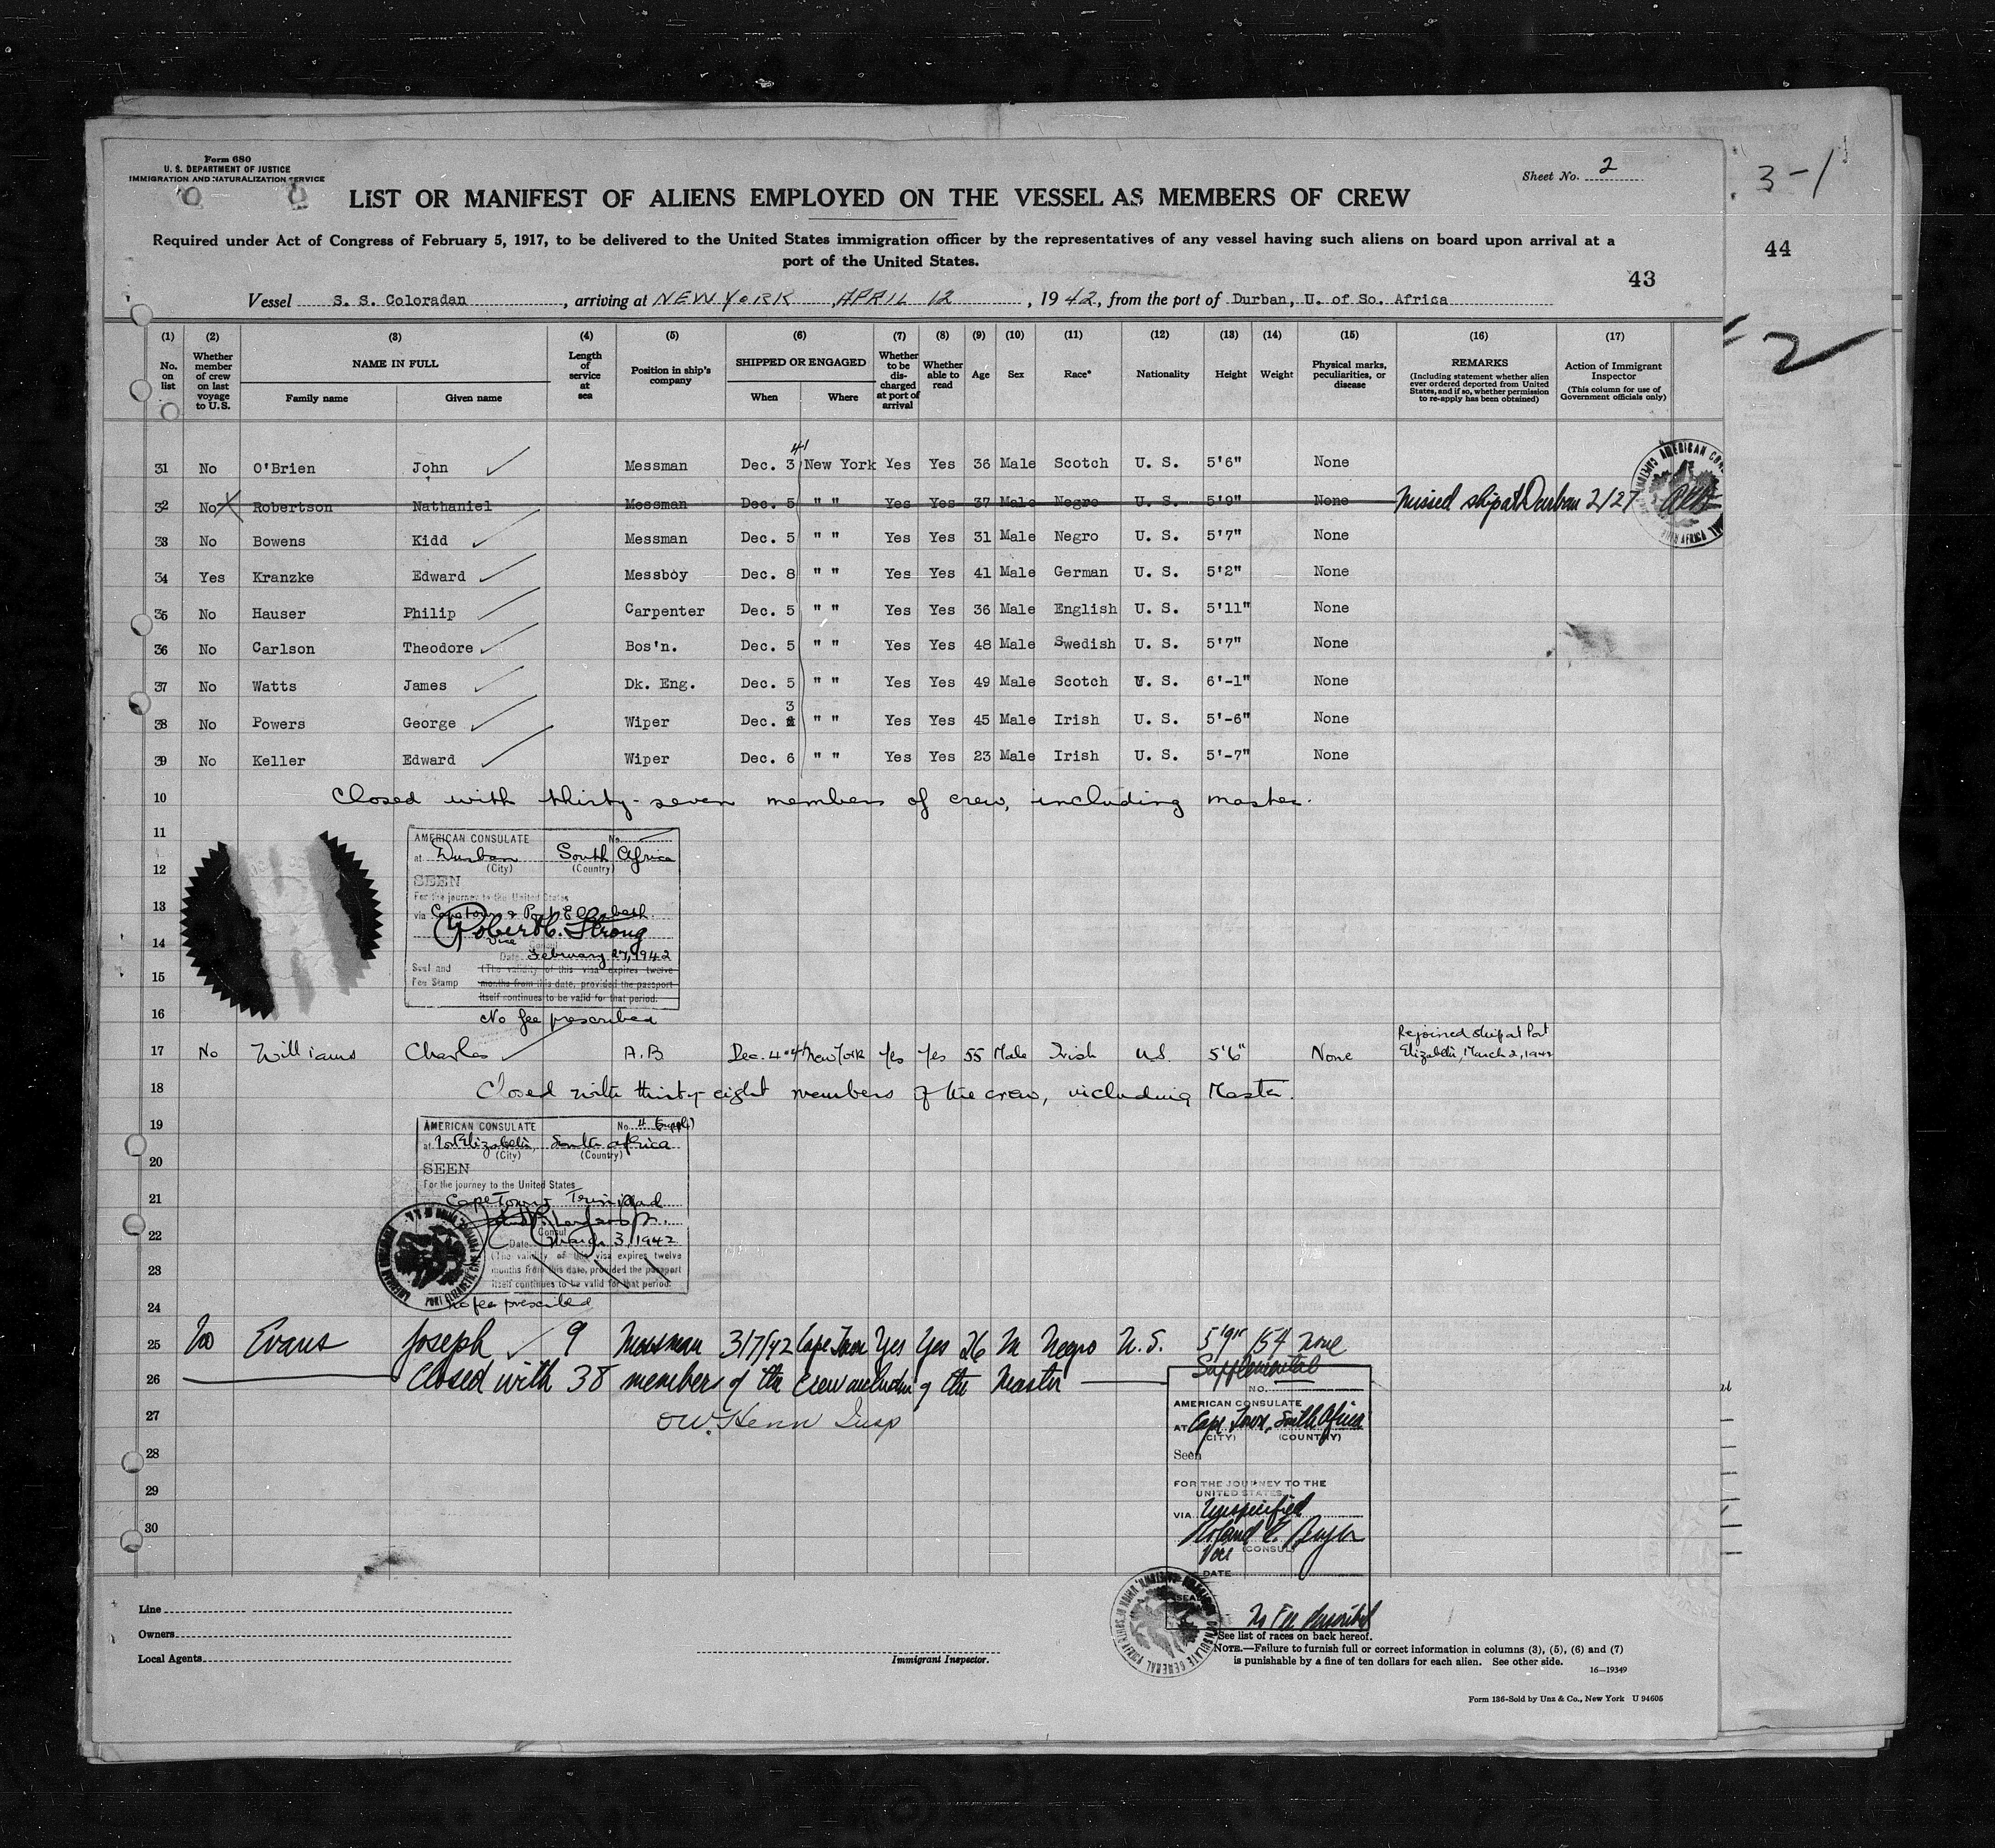 Form 680
U. S. DEPARTMENT OF JUSTICE
IMMIGRATION AND NATURALIZATION SERVICE
Sheet No. 2
3-1
LIST OR MANIFEST OF ALIENS EMPLOYED ON THE VESSEL AS MEMBERS OF CREW
Required under Act of Congress of February 5, 1917, to be delivered to the United States immigration officer by the representatives of any vessel having such aliens on board upon arrival at a
port of the United States.
44
43
Vessel S. S. Coloradan, arriving at NEW YORK APRIL 12, 1942, from the port of Durban, U. of So. Africa
2
(1) (2) (3) (4) (5) (6) (7) (8) (9) (10) (11) (12) (13) (14) (15) (16) (17)
No. on list
Whether member of crew on last voyage to U.S.
NAME IN FULL
Family name Given name
Length of service at sea
Position in ship's company
SHIPPED OR ENGAGED
When Where
Whether to be discharged at port of arrival
Whether able to read
Age
Sex
Race*
Nationality
Height
Weight
Physical marks, peculiarities, or disease
REMARKS
(Including statement whether alien ever ordered deported from United States, and if so, whether permission to re-apply has been obtained)
Action of Immigrant Inspector
(This column for use of Government officials only)
41
31 No O'Brien John Messman Dec. 3 New York Yes Yes 36 Male Scotch U. S. 5'6" None
32 No Robertson Nathaniel Messman Dec. 5 " " Yes Yes 37 Male Negro U. S. 5'9" None Missed ship at Durban 2/27
33 No Bowens Kidd Messman Dec. 5 " " Yes Yes 31 Male Negro U. S. 5'7" None
34 Yes Kranzke Edward Messboy Dec. 8 " " Yes Yes 41 Male German U. S. 5'2" None
35 No Hauser Philip Carpenter Dec. 5 " " Yes Yes 36 Male English U. S. 5'11" None
36 No Carlson Theodore Bos'n. Dec. 5 " " Yes Yes 48 Male Swedish U. S. 5'7" None
37 No Watts James Dk. Eng. Dec. 5 " " Yes Yes 49 Male Scotch U. S. 6'-1" None
38 No Powers George Wiper Dec. 3 " " Yes Yes 45 Male Irish U. S. 5'-6" None
39 No Keller Edward Wiper Dec. 6 " " Yes Yes 23 Male Irish U. S. 5'-7" None
10 Closed with thirty-seven members of crew, including master.
11
AMERICAN CONSULATE No.
at Durban South Africa
(City) (Country)
12
SEEN
For the journey to the United States
13
via Cape Town & Port Elizabeth
Robert C. Strong
14
Vice Consul
Date February 27, 1942
15
Seal and Fee Stamp
(The validity of this visa expires twelve
months from this date, provided the passport
itself continues to be valid for that period.
16
No fee prescribed
17 No Williams Charles A.B. Dec. 4 '41 New York Yes Yes 55 Male Irish U.S. 5'6" None Rejoined ship at Port Elizabeth, March 2, 1942
18 Closed with thirty-eight members of the crew, including Master.
19
AMERICAN CONSULATE No. 4 (Suppl)
at Port Elizabeth, South Africa
(City) (Country)
20
SEEN
For the journey to the United States
21
Cape Town & Trinidad
22
Consul
Date March 3, 1942
(The validity of this visa expires twelve
23
months from this date, provided the passport
itself continues to be valid for that period.
24
No fee prescribed
25 No Evans Joseph 9 Messman 3/7/42 Cape Town Yes Yes 26 M Negro U.S. 5'9" 154 None
26 Closed with 38 members of the Crew including the Master
Supplemental
NO.
27
AMERICAN CONSULATE
AT Cape Town, South Africa
(CITY) (COUNTRY)
28
Seen
29
FOR THE JOURNEY TO THE
UNITED STATES
VIA Unspecified
30
Vice (CONSUL)
DATE
No Fee Prescribed
Line
Owners
Local Agents
Immigrant Inspector.
See list of races on back hereof.
NOTE.—Failure to furnish full or correct information in columns (3), (5), (6) and (7)
is punishable by a fine of ten dollars for each alien. See other side.
16—19349
Form 136-Sold by Unz & Co., New York U 94605